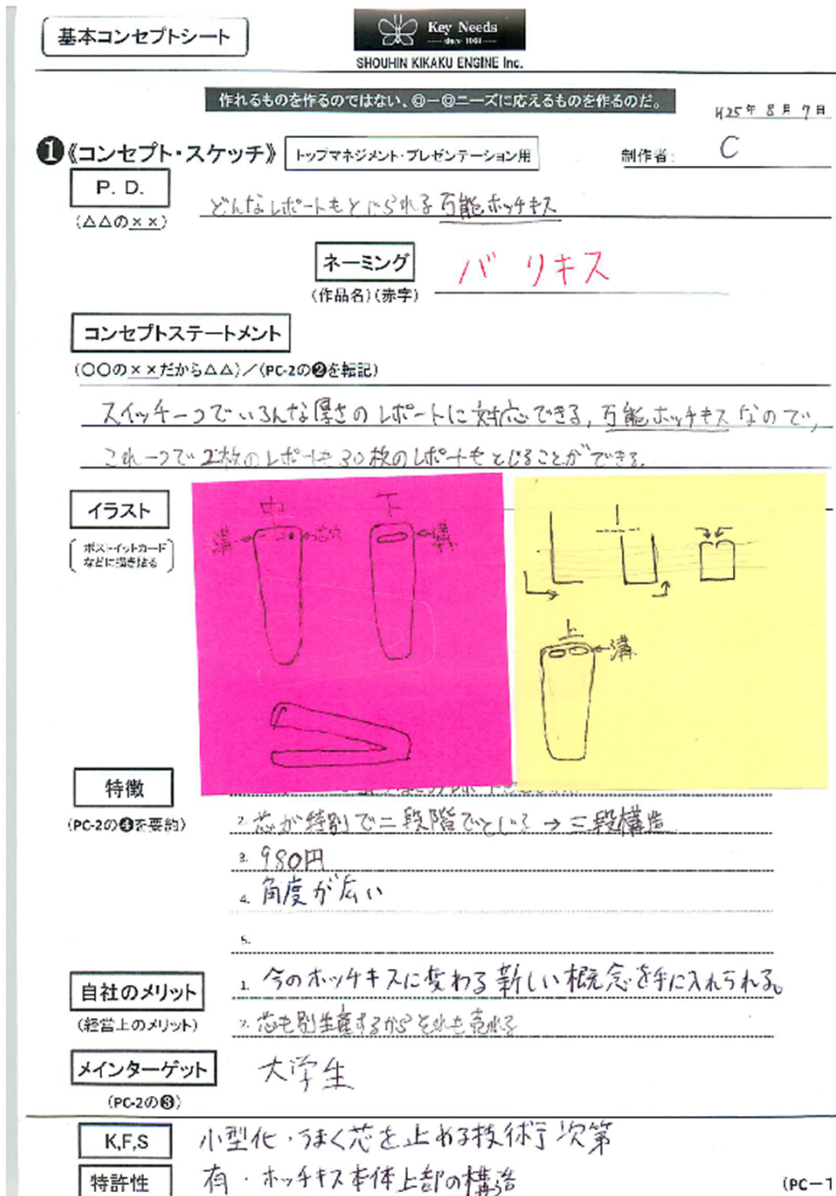 基本コンセプトシート
Key Needs
since 1991
SHOUHIN KIKAKU ENGINE Inc.
作れるものを作るのではない、◎ー◎ニーズに応えるものを作るのだ。
H25年 8月 7日
❶《コンセプト・スケッチ》 トップマネジメント・プレゼンテーション用 制作者: C
P. D.
(△△の××)
どんなレポートもとじられる万能ホッチキス
ネーミング
(作品名)(赤字)
バリキス
コンセプトステートメント
(○○の××だから△△)/(PC-2の❷を転記)
スイッチ一つでいろんな厚さのレポートに対応できる,万能ホッチキスなので,
これ一つで2枚のレポートも30枚のレポートもとじることができる.
イラスト
ポストイットカード
などに描き貼る
中 下
溝 芯穴 溝
上
溝
特徴
(PC-2の❹を要約)
2. 芯が特別で二段階でとじる → 三段構造
3. 980円
4. 角度が広い
5.
自社のメリット
(経営上のメリット)
1. 今のホッチキスに変わる新しい概念を手に入れられる。
2. 芯も別生産するからそれも売れる
メインターゲット
(PC-2の❸)
大学生
K,F,S
小型化・うまく芯を止める技術次第
特許性
有・ホッチキス本体上部の構造
(PC-1